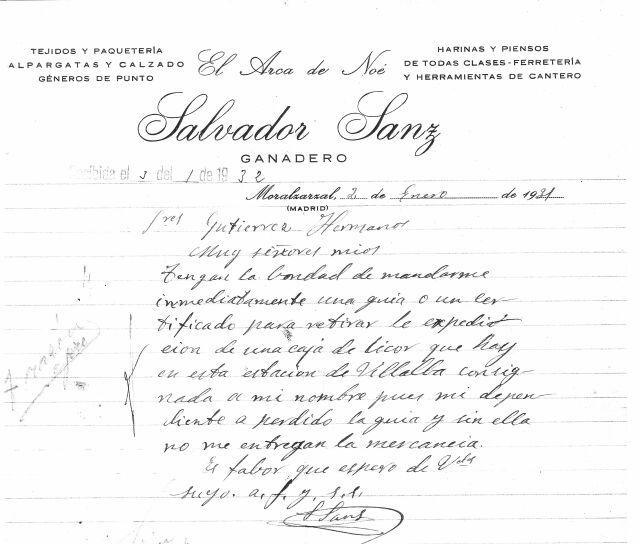 TEJIDOS Y PAQUETERÍA
ALPARGATAS Y CALZADO
GÉNEROS DE PUNTO
El Arca de Noé
HARINAS Y PIENSOS
DE TODAS CLASES-FERRETERÍA
Y HERRAMIENTAS DE CANTERO
Salvador Sanz
GANADERO
Recibida el 3 del 1 de 1932
Moralzarzal, 2 de Enero de 1931
(MADRID)
Sres Gutierrez Hermanos
Muy señores mios
tengan la bondad de mandarme
inmediatamente una guia o un cer-
tificado para retirar le expedi
cion de una caja de licor que hay
en esta estacion de Villalba consig-
nada a mi nombre pues mi depen-
diente a perdido la guia y sin ella
no me entregan la mercancia.
Es fabor que espero de Vds
suyo. a. f. y. s. s.
S Sanz